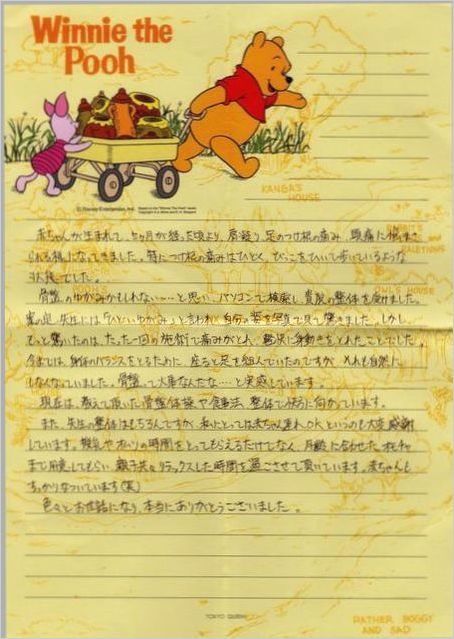 Winnie the
Pooh
KANGA'S
HOUSE
赤ちゃんが生まれて、ヶ月が経った頃より、肩凝り、足のつけ根の痛み、頭痛に悩まさ
られる様になってきました。特につけ根の痛みはひどく、びっこをひいて歩いているような
状態でした。
骨盤のゆがみかもしれない…と思い、パソコンで検索し、貴院の整体を受けました。
先生には「ひどいゆがみ」と言われ、自分の姿を写真で見て驚きました。しかし
もっと驚いたのは、たった一回の施術で痛みがとれ、軽快に身動きをとれたことでした。
今までは、身体のバランスをとるために、座ると足を組んでいたのですが、それも自然に
しなくなっていました。骨盤って大事なんだな…と実感しています。
現在は、教えて頂いた骨盤体操や食事法、整体で快方に向かっています。
また、先生の整体はもちろんですが、私にとっては赤ちゃん連れOKというのも大変感謝
しています。授乳やオムツの時間をとってもらえるだけでなく、月齢に合わせたオモチャ
まで用意してもらい、親子共々リラックスした時間を過ごさせて頂いています。赤ちゃんも
すっかりなついています(笑)
色々とお世話になり、本当にありがとうございました。
OWL'S HOUSE
TOKYO QUEEN
RATHER BOGGY
AND SAD